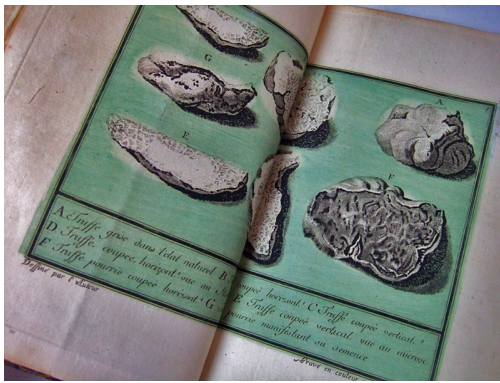 G
A
E
F
A. Truffe grise dans l'état naturel B coupeé horizont.t C Truffe coupeé vertical.t
D Truffe, coupeé, horizont.t vue au E Truffe coupeé vertical. vue au microsc
F Truffe pourrie coupeé horizont.t G pourrie manifestant sa semence
Dessiné par l'auteur
Gravé en couleur